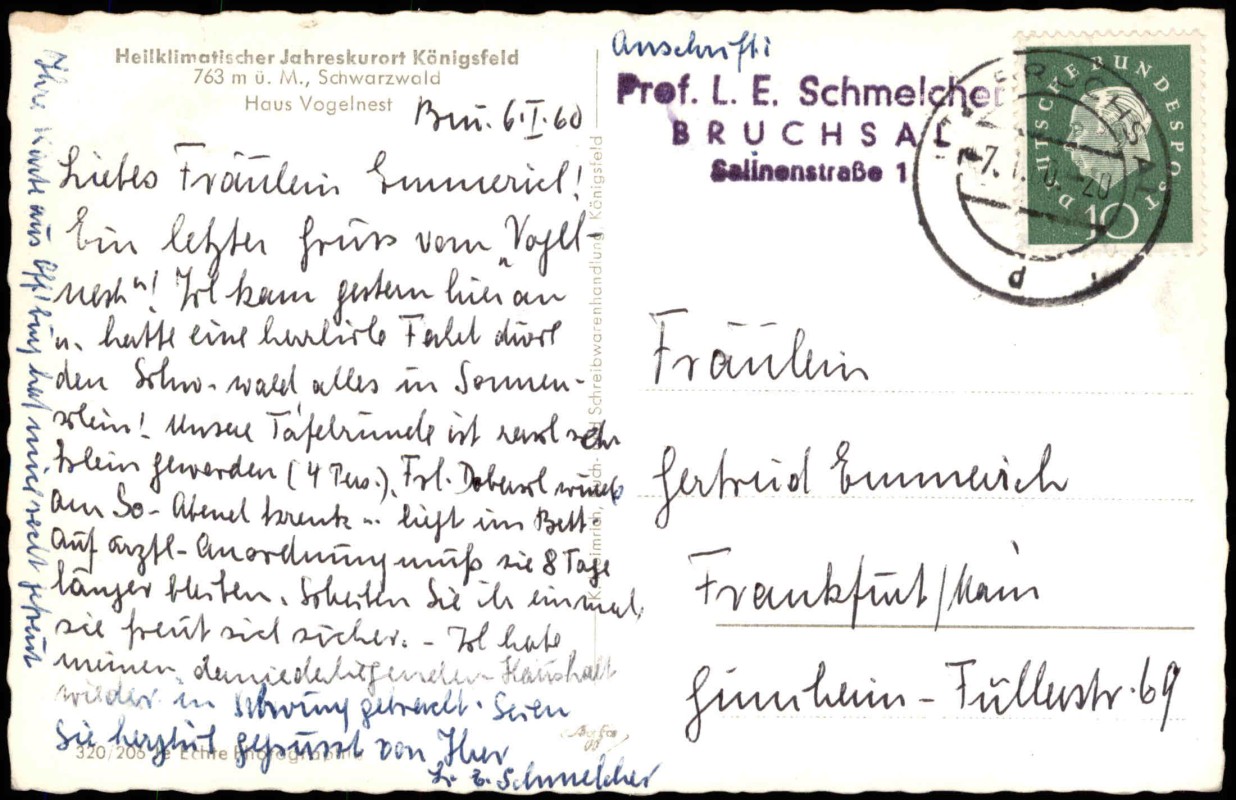 Heilklimatischer Jahreskurort Königsfeld
763 m ü. M., Schwarzwald
Haus Vogelnest
Bru. 6.I.60
Liebes Fräulein Emmerich!
Ein letzter Gruss vom „Vogel-
nest"! Ich kam gestern hier an
u. hatte eine herrliche Fahrt durch
den Schw.wald, alles in Sonnen-
schein! Unsere Tafelrunde ist recht sehr
klein geworden (4 Pers.), Frl. wurde
am So-Abend krank u. liegt im Bett.
Auf ärztl. Anordnung muß sie 8 Tage
länger bleiben. Schreiben Sie ihr einmal,
sie freut sich sicher. – Ich habe
meinen daniederliegenden Haushalt
wieder in Schwung gebracht. Seien
Sie herzlich gegrüsst von Ihrer
L. E. Schmelcher
Ihre Karte aus Offbürg hat mich recht gefreut
320/206 Echte Photographie
Buch- und Schreibwarenhandlung, Königsfeld
Anschrift:
Prof. L. E. Schmelcher
BRUCHSAL
Salinenstraße 1
DEUTSCHE BUNDESPOST
10
BRUCHSAL
7.1.60-20
Fräulein
Gertrud Emmerich
Frankfurt/Main
Ginnheim - Füllerstr. 69